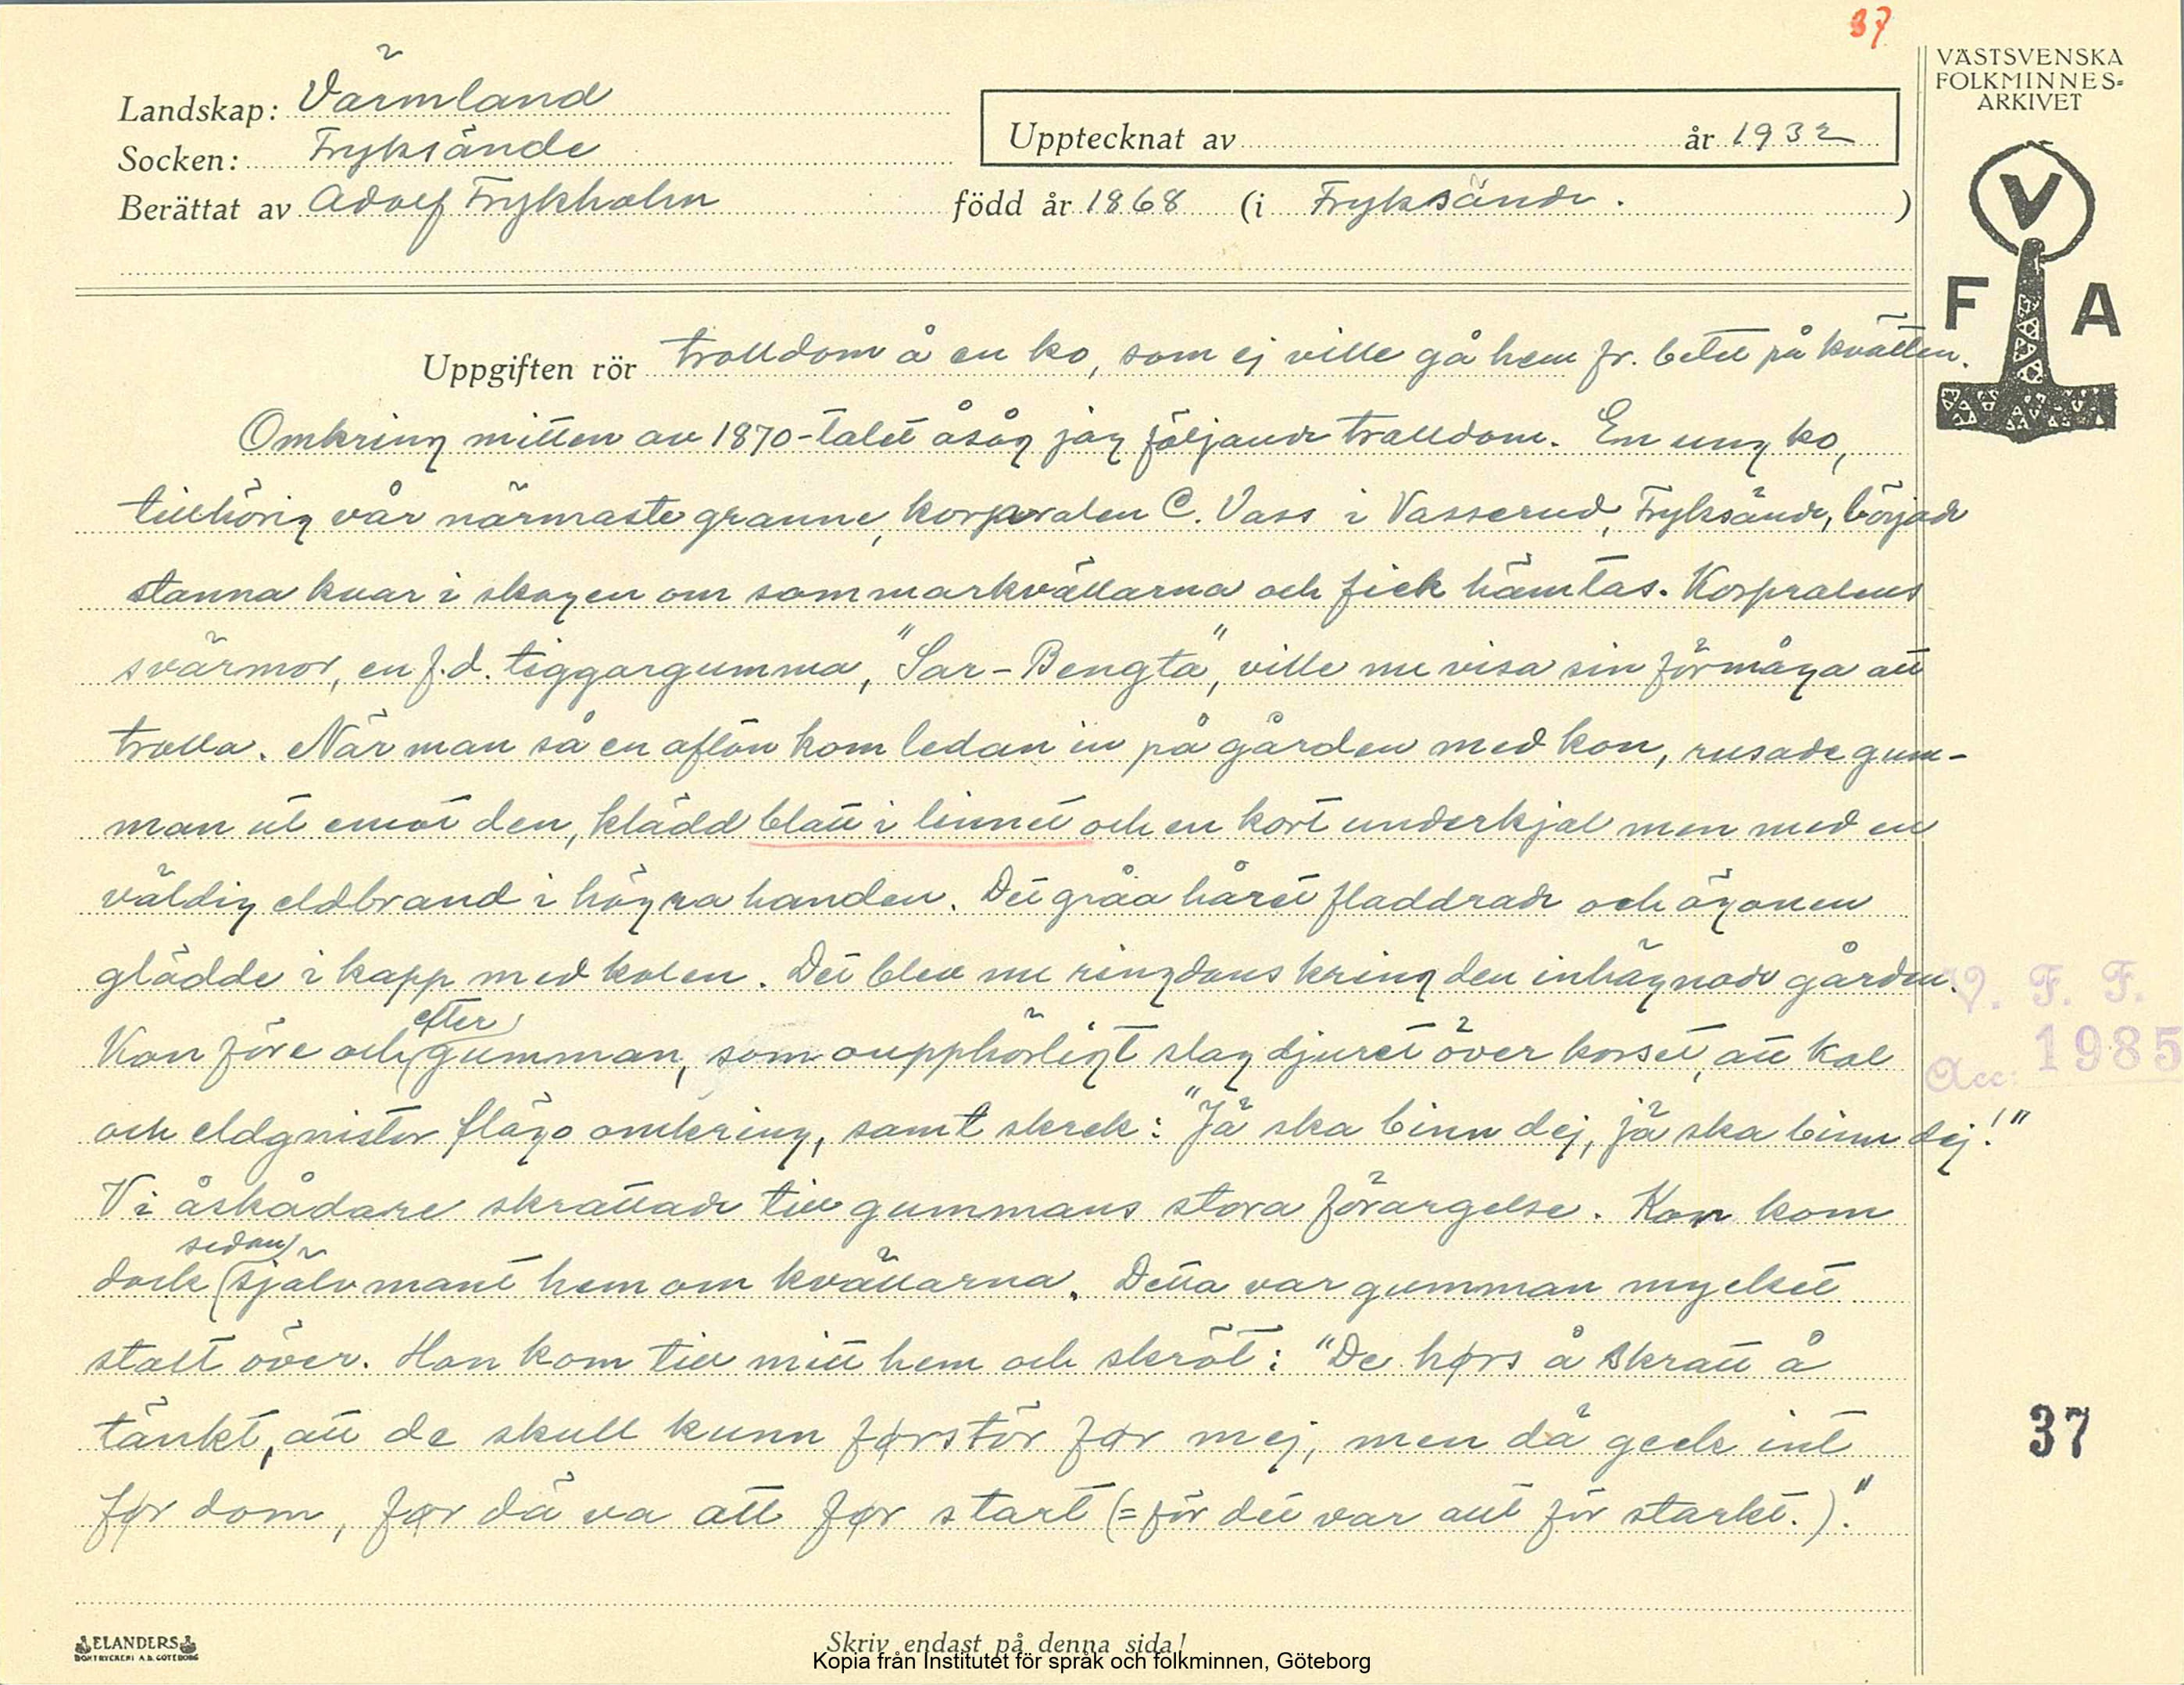 37
VÄSTSVENSKA
FOLKMINNES-
ARKIVET
Landskap: Värmland
Socken: Fryksände
Upptecknat av år 1932
Berättat av Adolf Frykholm född år 1868 (i Fryksände. )
V
F A
Uppgiften rör trolldom å en ko, som ej ville gå hem fr. betet på kvällen.
Omkring mitten av 1870-talet åsåg jag följande trolldom. En ung ko,
tillhörig vår närmaste granne, korpralen C. Vass i Vasserud, Fryksände, började
stanna kvar i skogen om sommarkvällarna och fick hämtas. Korpralens
svärmor, en f.d. tiggargumma, "Sar-Bengta", ville nu visa sin förmåga att
trolla. När man så en afton kom ledan in på gården med kon, rusade gum-
man ut emot den, klädd blott i linnet och en kort underkjol men med en
väldig eldbrand i högra handen. Det gråa håret fladdrade och ögonen
glödde i kapp med kolen. Det blev nu ringdans kring den inhägnade gården.
Kon före och efter gumman, som oupphörligt slog djuret över korset, att kol
och eldgnistor flögo omkring, samt skrek: "Jä ska binn dej, jä ska binn dej!"
Vi åskådare skrattade till gummans stora förargelse. Kon kom
dock sedan självmant hem om kvällarna. Detta var gumman mycket
stolt över. Hon kom till mitt hem och skröt: "De hørs å skratt å
tänkt, att de skull kunn førstör før mej, men dä geck int
før dom, før dä va allt før start (= för det var allt för starkt.)."
V. F. F.
Acc: 1985
37
ELANDERS
BOKTRYCKERI A.B. GÖTEBORG
Skriv endast på denna sida!
Kopia från Institutet för språk och folkminnen, Göteborg